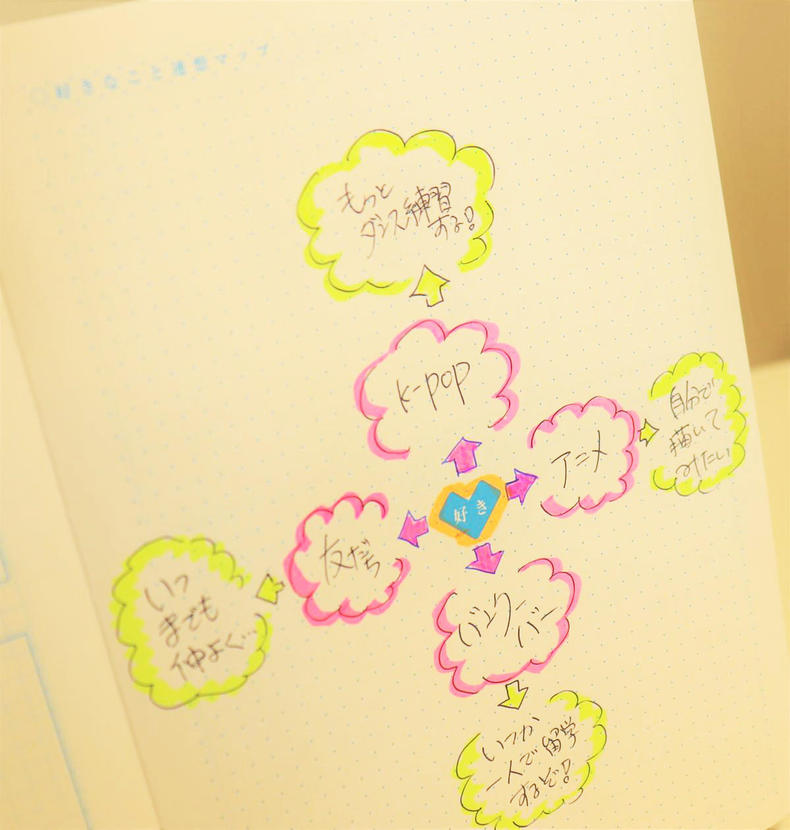 好きなこと連想マップ
もっと
ダンス練習
する!
K-POP
アニメ
自分で
描いて
みたい
好き
友だち
いつ
までも
仲よく...
バンクーバー
いつか
一人で留学
するぞ!